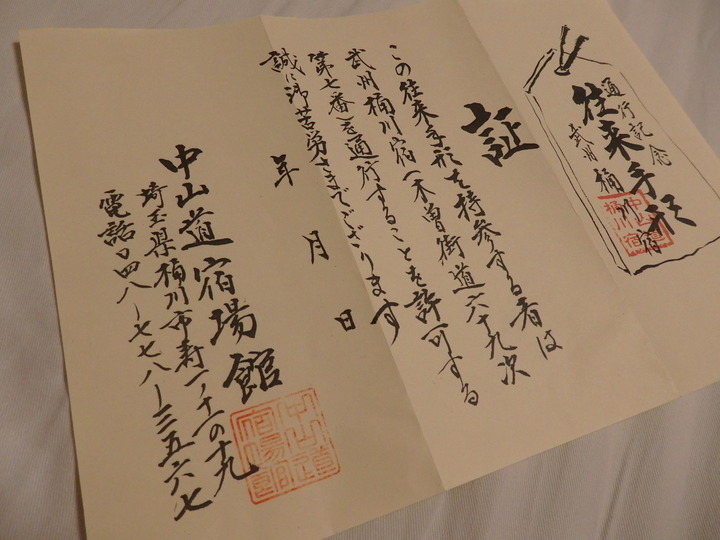 通行記念
往来手形
武州桶川宿
中山道
桶川宿
証
この往来手形を持参する者は
武州桶川宿(木曽街道六十九次
第七番)を通行することを許可する
誠に御苦労さまでござります
年 月 日
中山道宿場館
埼玉県桶川市寿一ノ十一の十九
電話〇四八ー七七八ー三五六七
中山道
宿場館